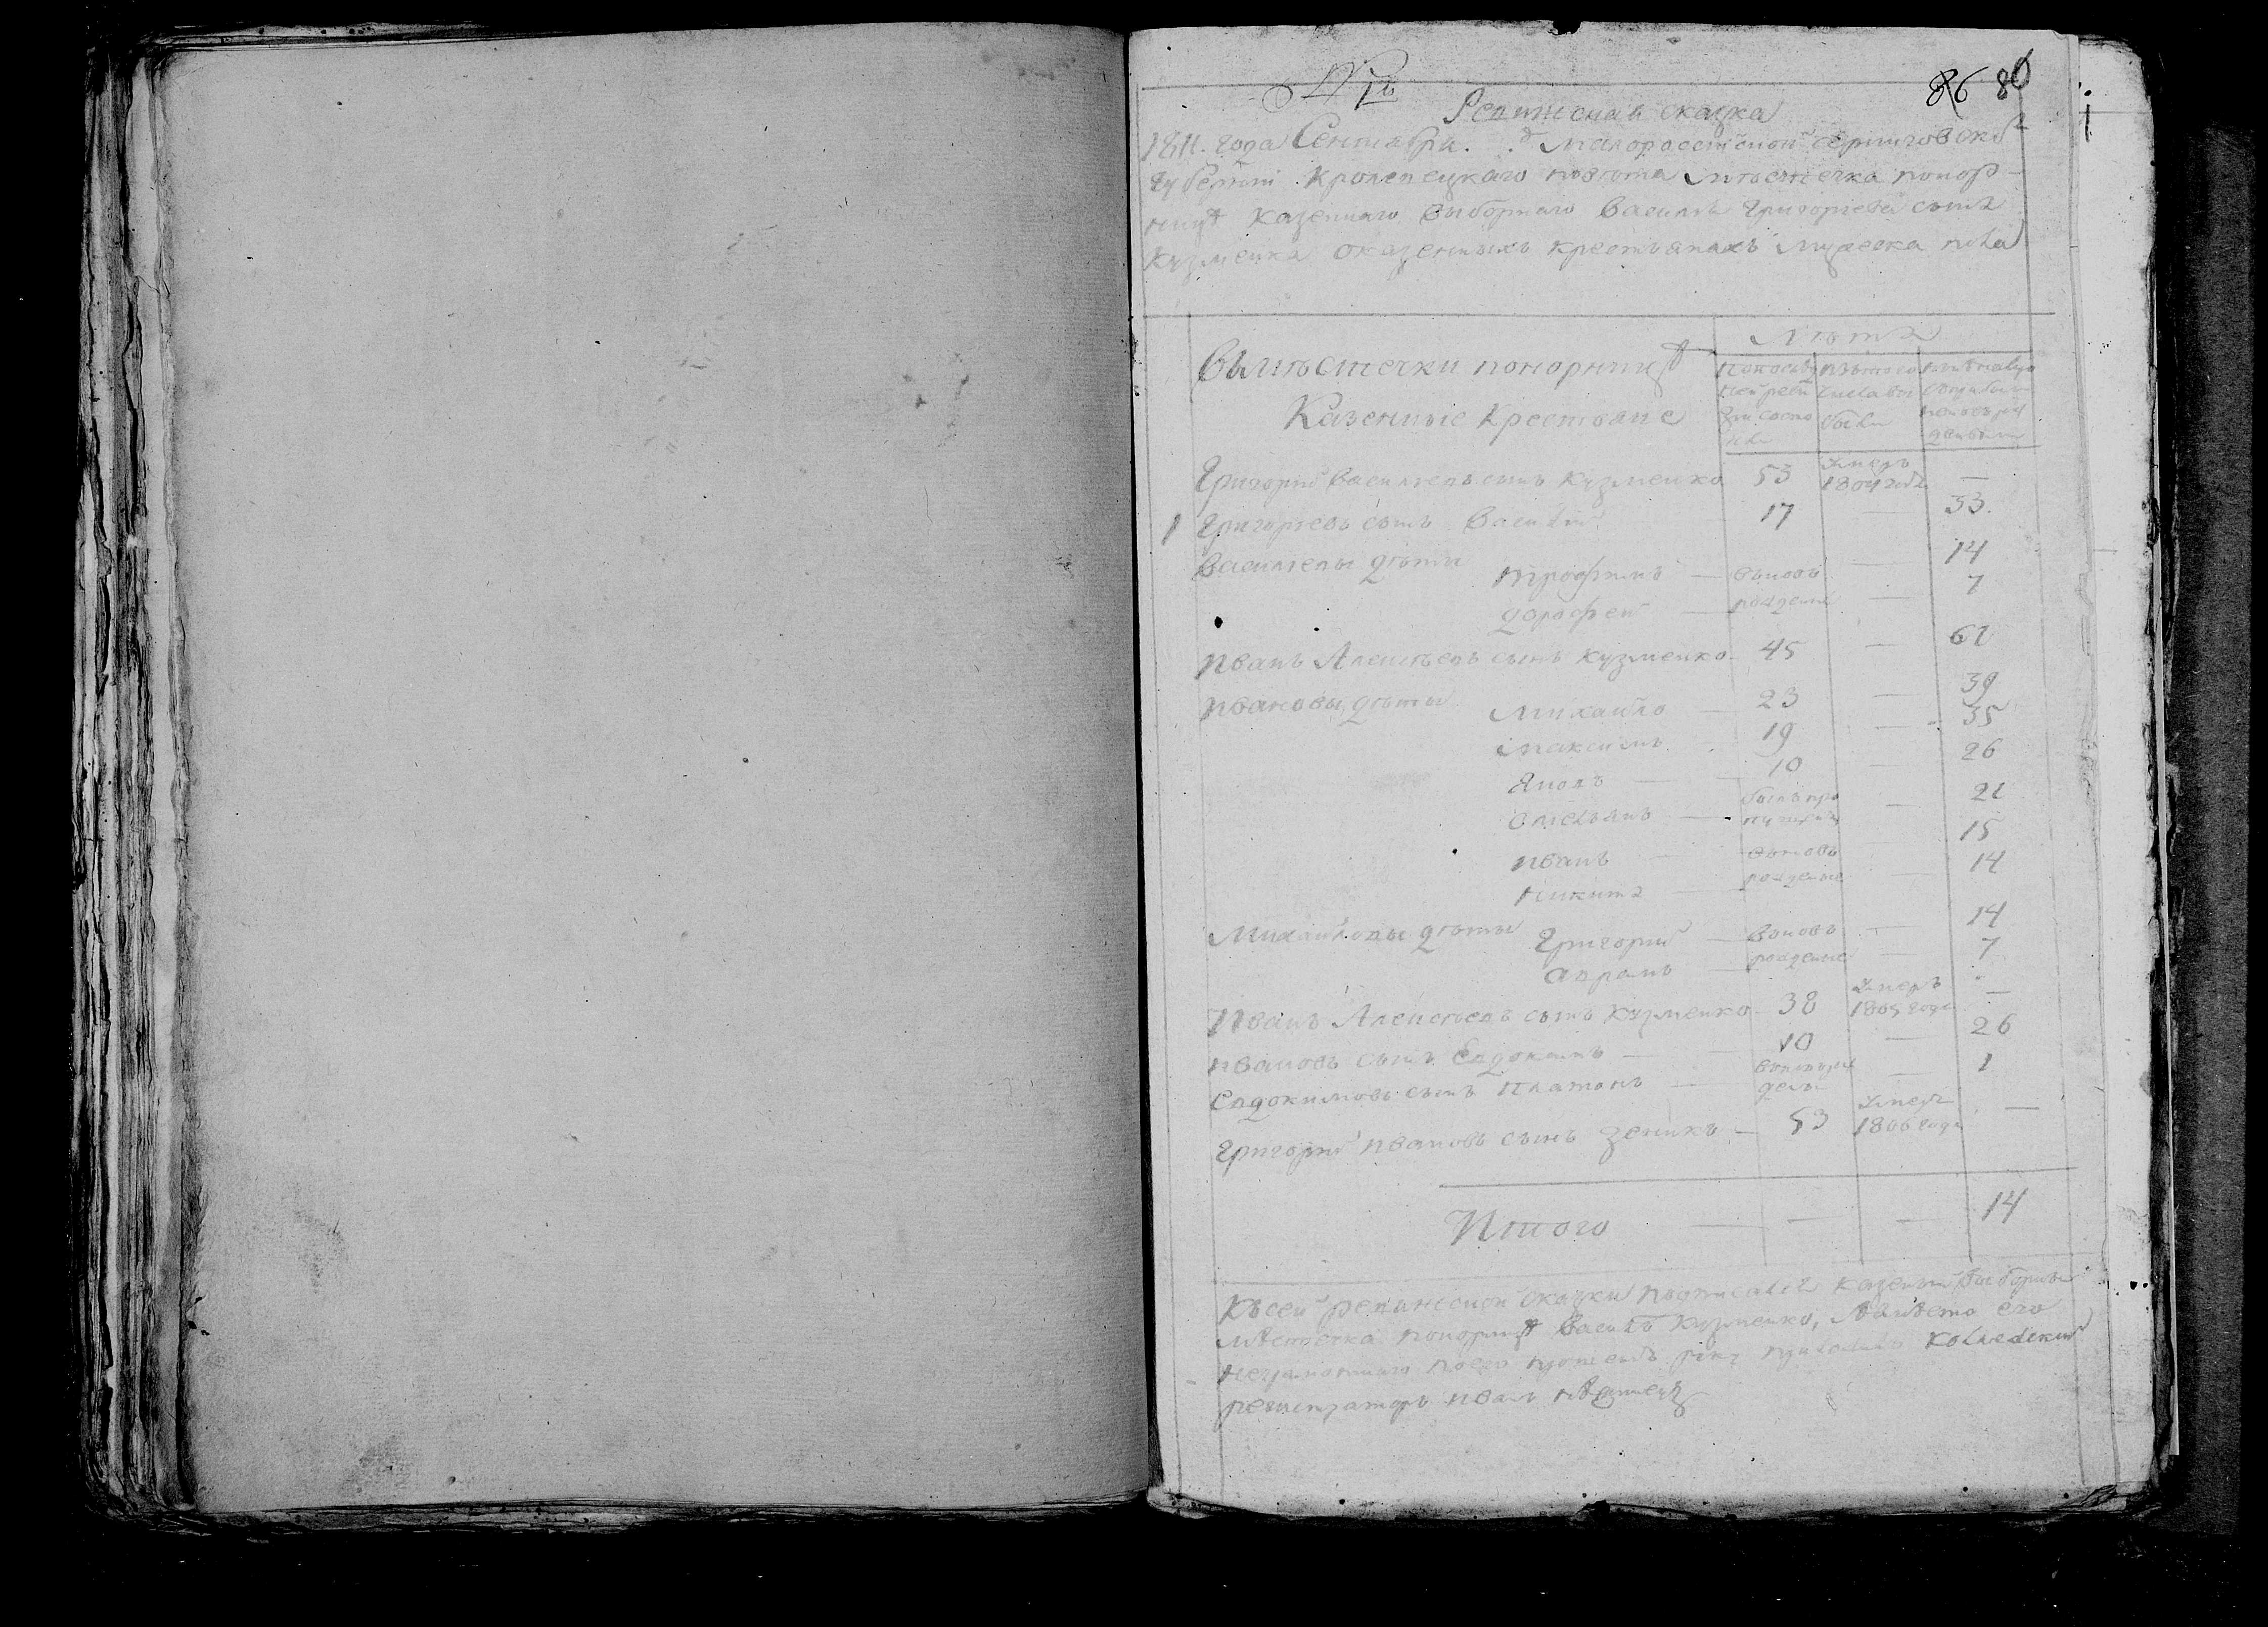 86 80
Ревизская сказка
1811. года Сентября. Малороссiйской Черниговской
губернiи Кролевецкаго повѣта мѣстечка Понор-
ницѣ казеннаго выборнаго Василя Григорiева сына
Кузменка оказенныхъ крестьянахъ мужеска пола
Лѣта
Вымѣстечки Понорницѣ
Казенные Крестьяне
Григорий Васильевъ сынъ Кузменко 53 умеръ 1804 года —
1 Григорiевъ сынъ Василий 17 — 33.
Васильевы дѣты Трофимъ — вьновъ — 14
Дорофей — рожденые — 7
Иванъ Алексѣевъ сынъ Кузменко 45 — 62
Ивановы дѣты Михайло — 23 — 39
Максимъ 19 — 35
Яковъ — 10 — 26
Омельянъ — былъ пропущенъ — 21
Иванъ — вьновъ — 15
Никита — рожденые — 14
Михайловы дѣты Григорий — вьновъ — 14
Аврамъ — рожденые — 7
Иванъ Алексѣевъ сынъ Кузменко 38 умеръ 1805 года —
Ивановъ сынъ Евдокимъ — 10 — 26
Евдокимовъ сынъ Платонъ — — 1
Григорий Ивановъ сынъ — 53 умеръ 1806 года —
Итого — — — 14
Къ сей ревизской сказки подписался казенный выборный
мѣстечка Понорницѣ Василь Кузменко, а вмѣсто его
неграмотнаго по его прошенiю руку приложилъ коллежский
регистраторъ Иванъ